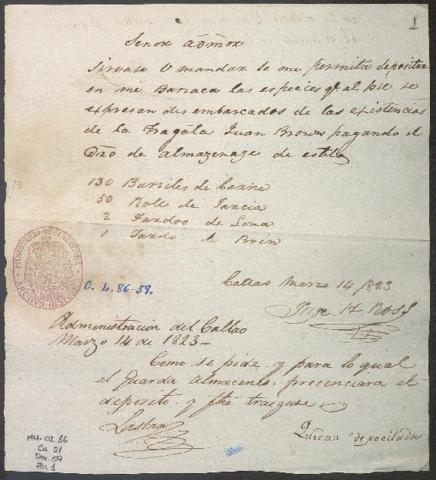 1
Señor admor
Sirvase V mandar se me permita depositar
en mi Barraca las especies qe. al pie se
expresan desembarcados de las existencias
de la Fragata Juan Brown pagando el
dro de almazenage de estilo
130 Barriles de Carne
50 Rollos de Jarcia
2 Fardos de Lona
1 Fardo de Brin
Callao Marzo 14 1823
Ross
O. L. 86-59.
Administracion del Callao
Marzo 14 de 1823-
Como se pide y para lo qual
el Guarda Almacenes precenciara el
deposito y fho traigase
Lastra
Quedan depocitados
MH. 02 86
Ca 21
Doc. 59
Fol. 1